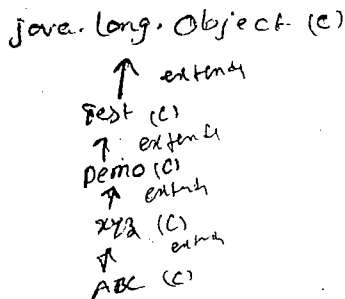 java.lang.Object (C)
extends
Test (C)
extends
Demo (C)
extends
xyz (C)
extends
ABC (C)